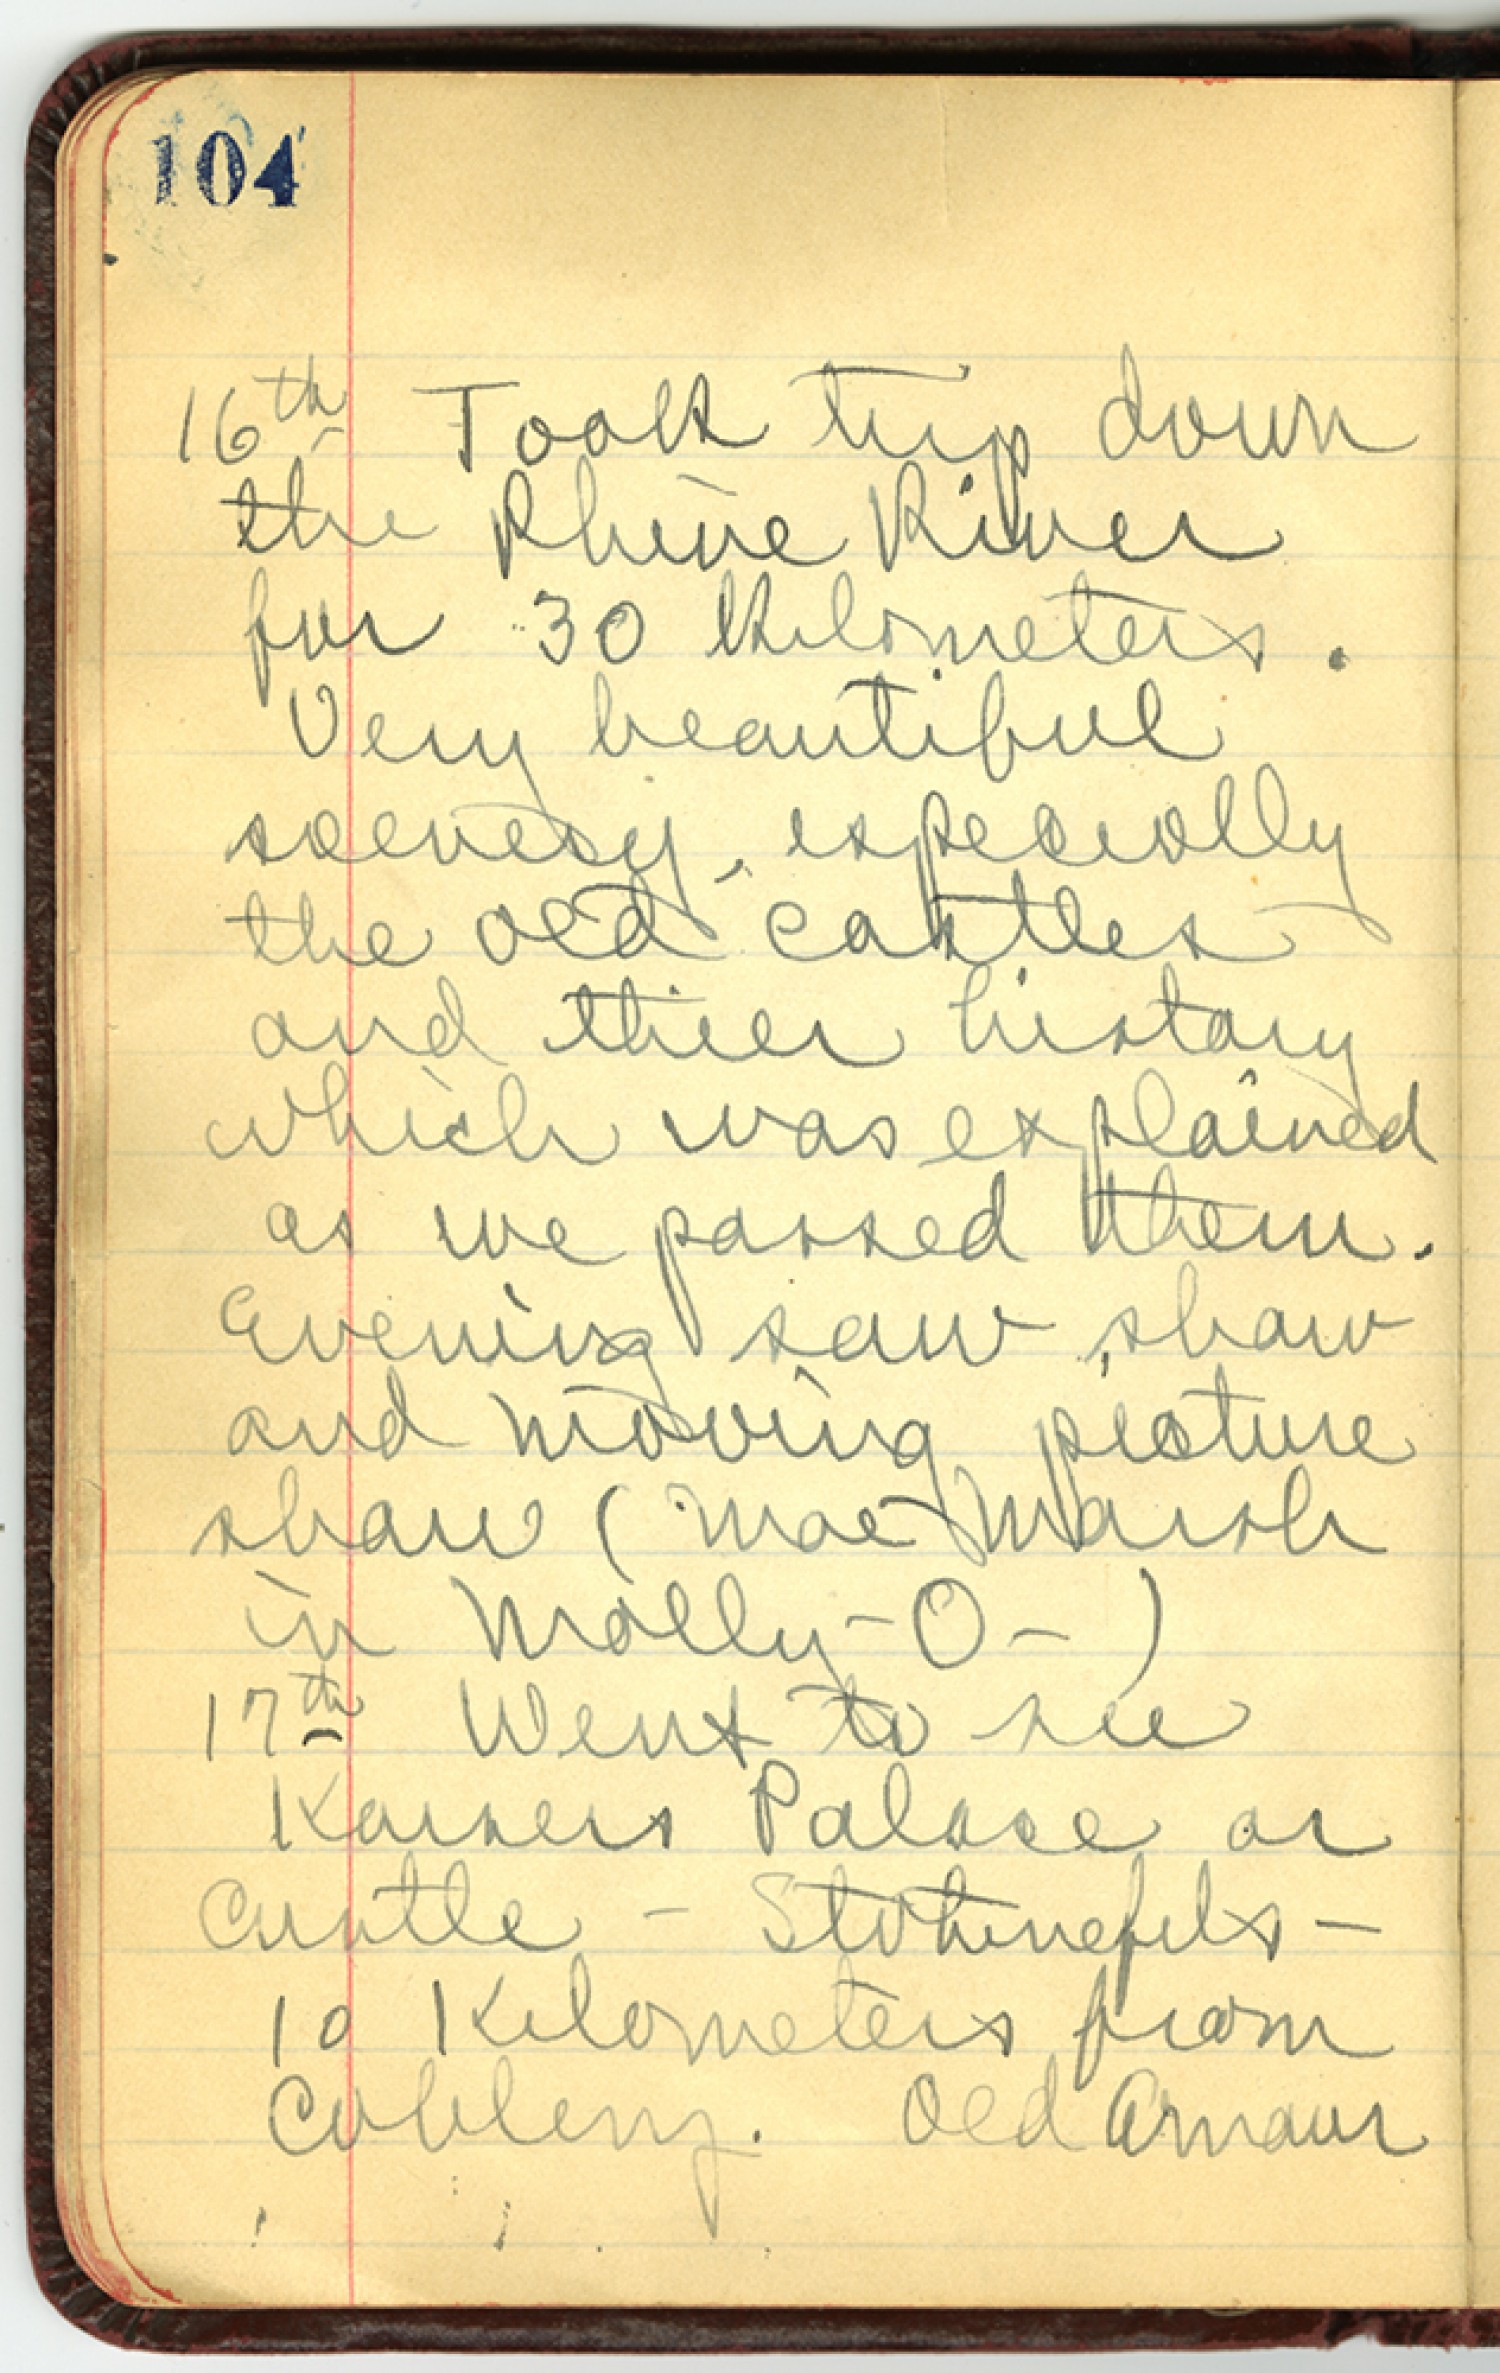 104
16th Took trip down
the Rhine River
for 30 Kilometers.
Very beautiful
scenery, especially
the old castles
and thier history
which was explained
as we passed them.
Evening saw show
and moving picture
show (Mae Marsh
in Molly-O-)
17th Went to see
Kaisers Palace or
Castle - Stolzenefels -
10 Kilometers from
Coblenz. Old Armour